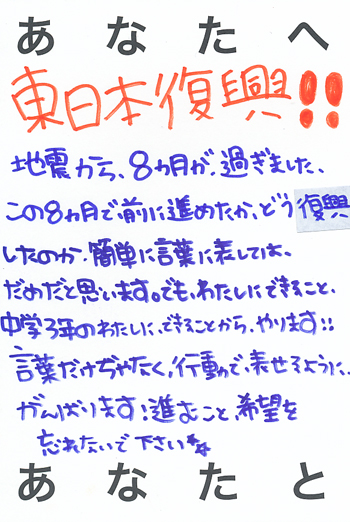 あなたへ
東日本復興!!
地震から、8ヵ月が、過ぎました、
この8ヵ月で、前に進めたか、どう復興
したのか、簡単に言葉に表しては、
だめだと思います。でも、わたしにできること、
中学3年のわたしに、できることから、やります!!
言葉だけぢゃなく、行動で、表せるように、
がんばります!進むこと、希望を
忘れないで下さい
あなたと